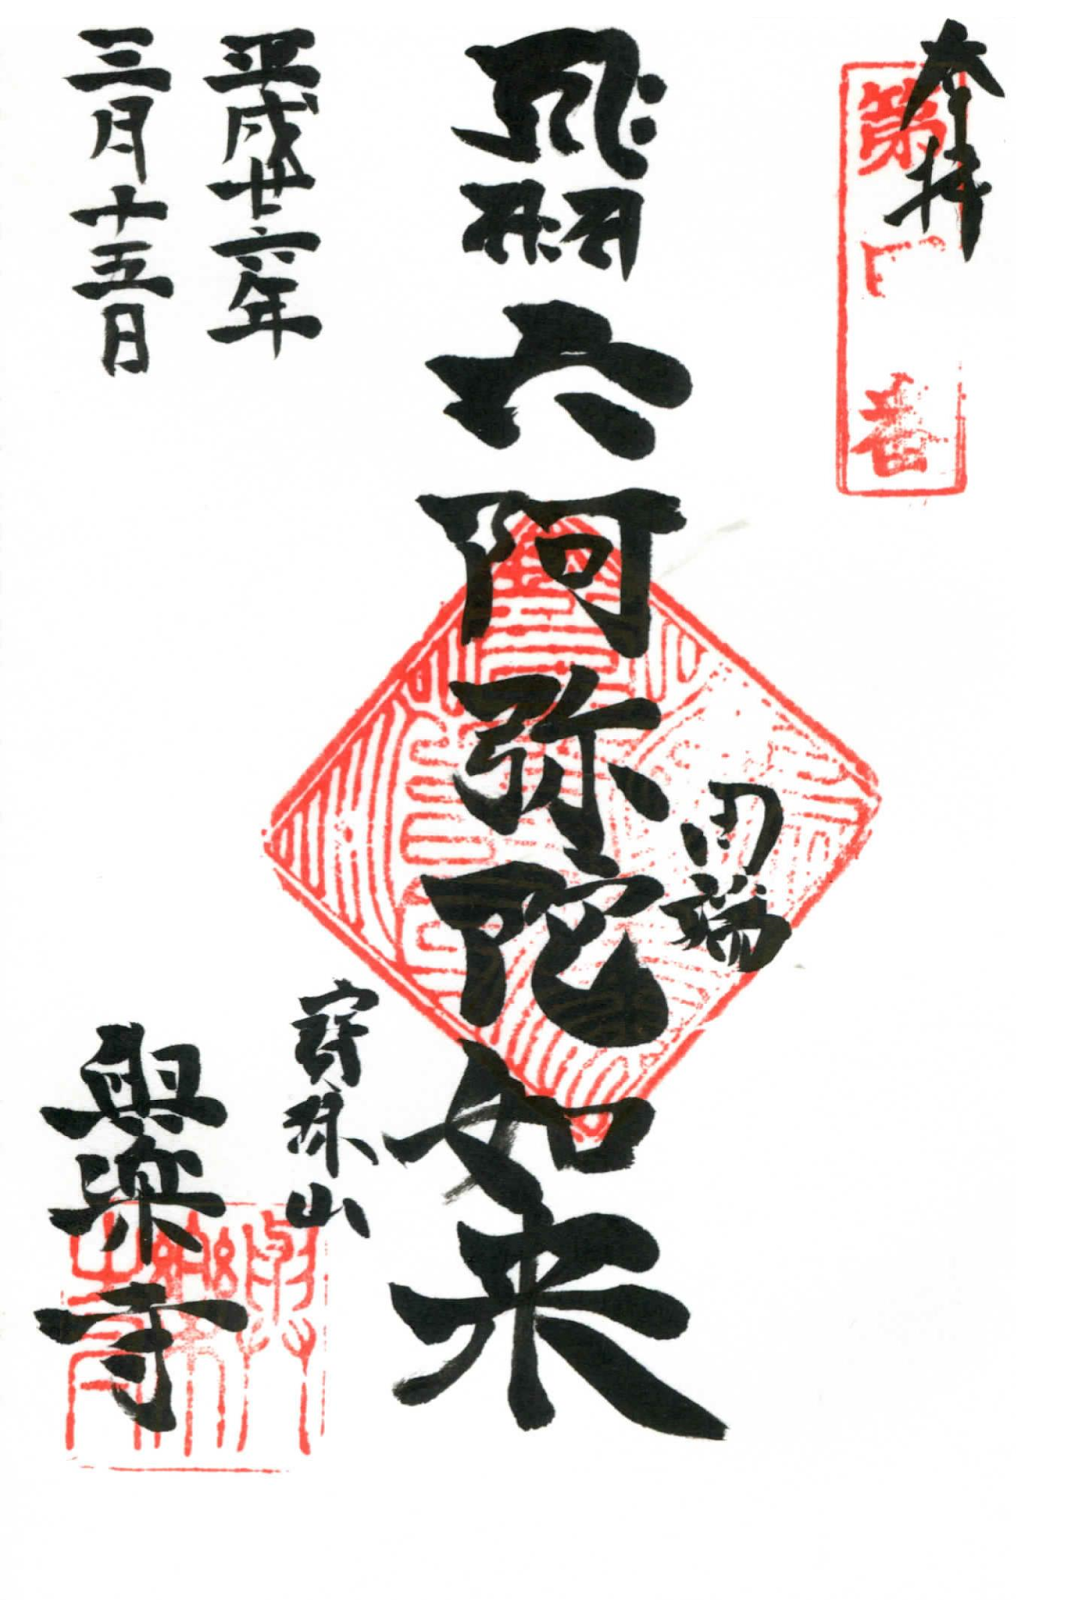 奉拝
第四番
田端
六阿弥陀如来
宝珠山
平成廿六年
三月十五日
與楽寺